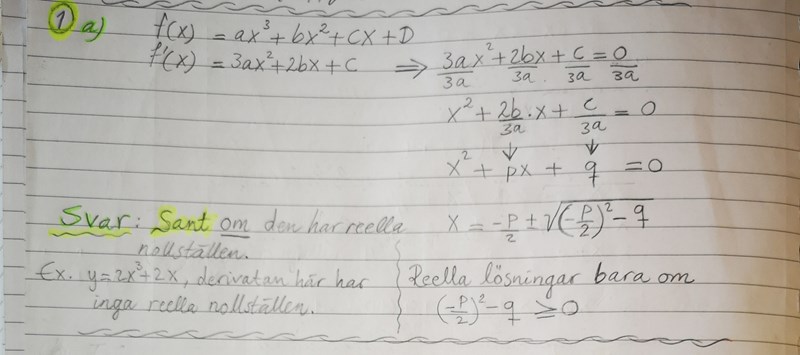 1 a) f(x) = ax³ + bx² + cx + D
f'(x) = 3ax² + 2bx + c ⟹ 3ax²/3a + 2bx/3a + c/3a = 0/3a
x² + 2b/3a · x + c/3a = 0
↓ ↓
x² + px + q = 0
Svar: Sant om den har reella
nollställen.
Ex. y = 2x³ + 2x, derivatan här har
inga reella nollställen.
x = -p/2 ± √((-p/2)² - q)
Reella lösningar bara om
(-p/2)² - q ≥ 0